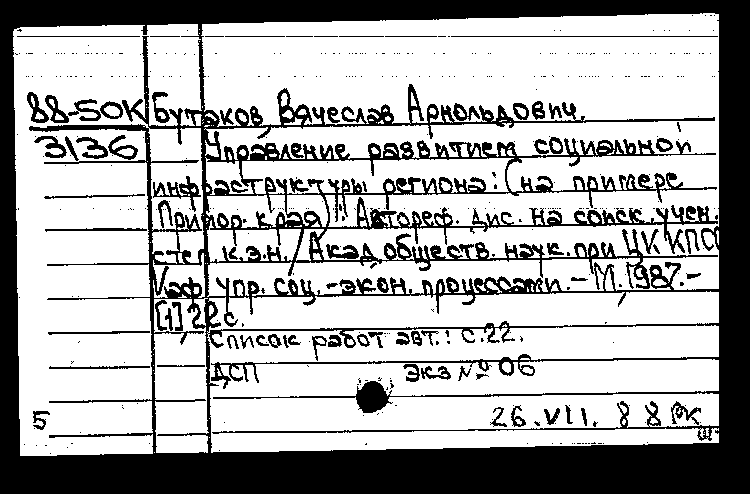 88-50К Бутаков, Вячеслав Арнольдович.
3136 Управление развитием социальной
инфраструктуры региона: (на примере
Примор. края): Автореф. дис. на соиск. учен.
степ. к.э.н. / Акад. обществ. наук. при ЦК КПСС
Каф. упр. соц.-экон. процессами. – М., 1987. –
[1], 22 с.
Список работ авт.: с. 22.
ДСП экз № 06
5 26.VII. 88